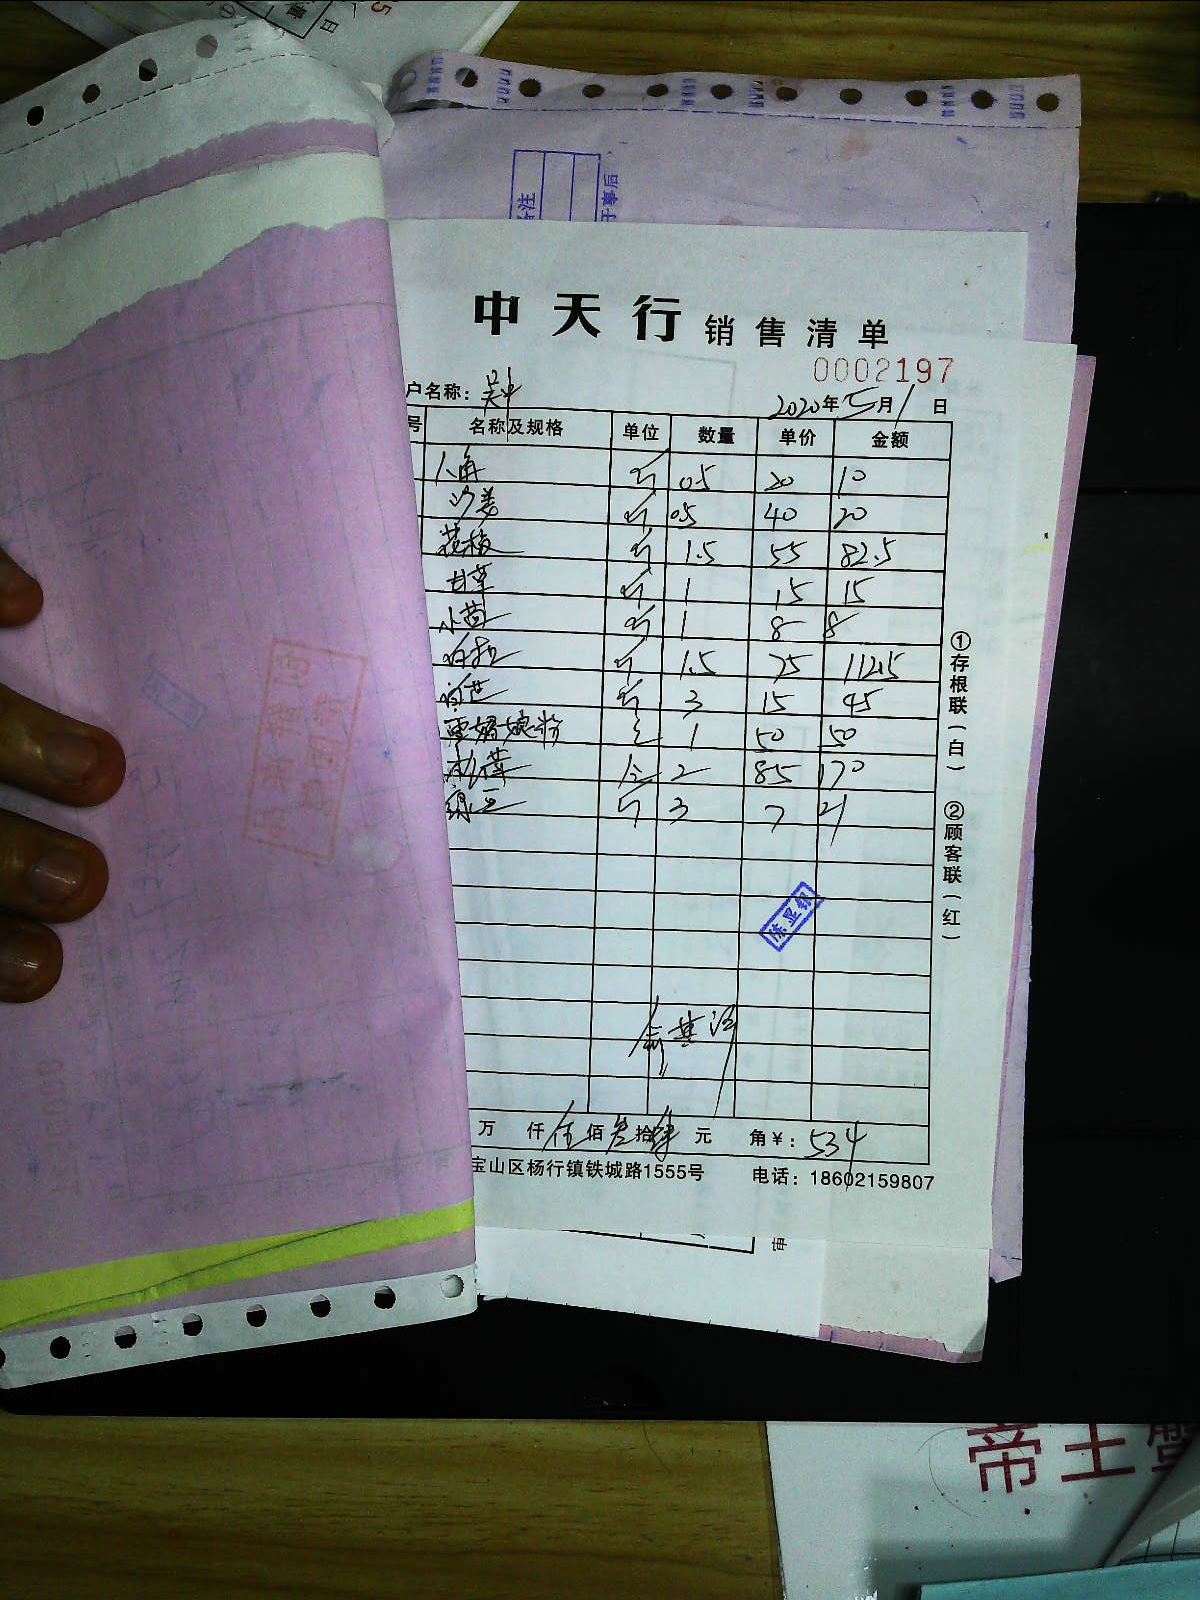 中天行 销售清单
0002197
户名称：吴中 2020年5月1日
号 名称及规格 单位 数量 单价 金额
八角 斤 0.5 20 10
沙姜 斤 05 40 20
花椒 斤 1.5 55 82.5
甘草 斤 1 15 15
小茴 斤 1 8 8
斤 1.5 75 112.5
白芷 斤 3 15 45
粉 1 50 50
2 85 170
绿豆 斤 3 7 21
陈亚银
万 仟 伍 佰 叁 拾 肆 元 角￥：534
宝山区杨行镇铁城路1555号 电话：18602159807
①存根联（白） ②顾客联（红）
帝王蟹